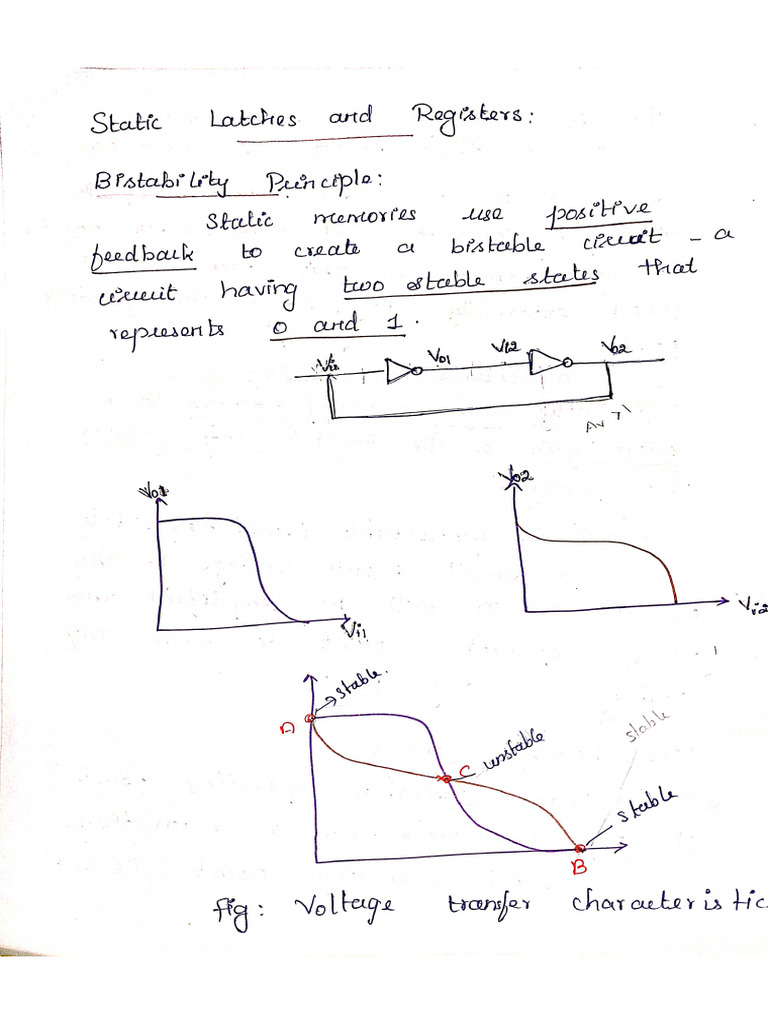 Static Latches and Registers:
Bistability Principle:
Static memories use positive
feedback to create a bistable circuit - a
circuit having two stable states that
represents 0 and 1.
Vi1 Vo1 Vi2 Vo2
Av >1
Vo1
Vo2
Vi1
Vi2
stable.
A
C unstable
stable
stable
B
fig: Voltage transfer characteristic